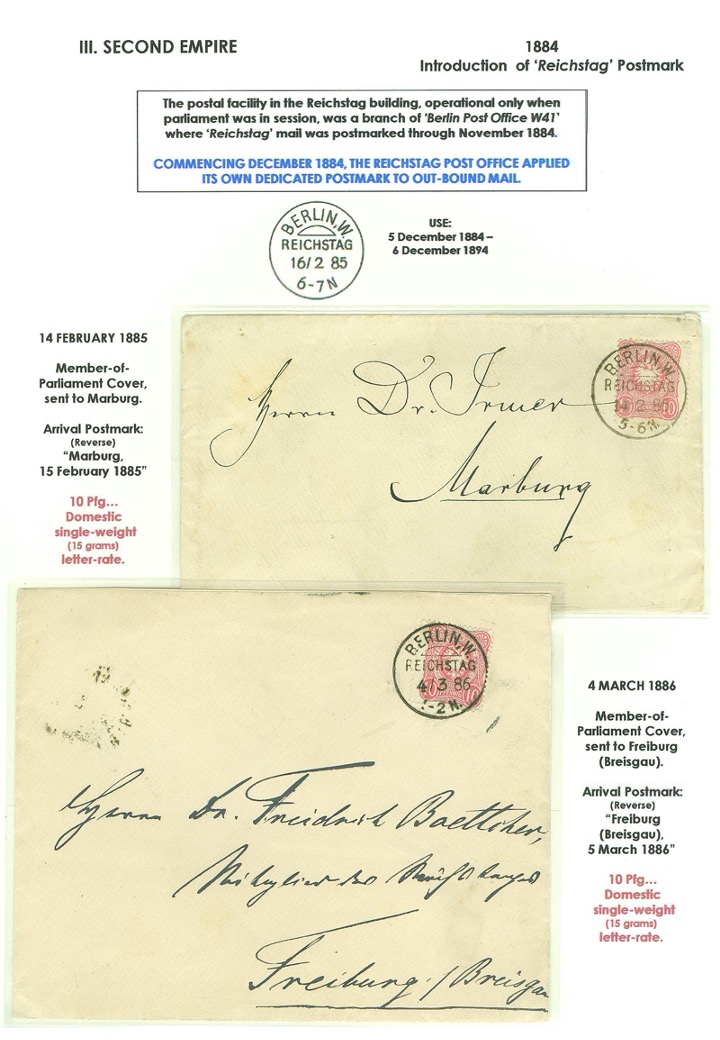 III. SECOND EMPIRE
1884
Introduction of 'Reichstag' Postmark
The postal facility in the Reichstag building, operational only when
parliament was in session, was a branch of 'Berlin Post Office W41'
where 'Reichstag' mail was postmarked through November 1884.
COMMENCING DECEMBER 1884, THE REICHSTAG POST OFFICE APPLIED
ITS OWN DEDICATED POSTMARK TO OUT-BOUND MAIL.
BERLIN, W.
REICHSTAG
16/2 85
6-7N
USE:
5 December 1884 –
6 December 1894
14 FEBRUARY 1885
Member-of-
Parliament Cover,
sent to Marburg.
Arrival Postmark:
(Reverse)
"Marburg,
15 February 1885"
10 Pfg...
Domestic
single-weight
(15 grams)
letter-rate.
BERLIN, W.
REICHSTAG
14 2 85
5-6N.
Herrn Dr. Irmer
Marburg
BERLIN, W.
REICHSTAG
4/3 86
-2N.
10
Herrn Dr. Friedrich Baettcher,
Mitglied des Reichstages
Freiburg / Breisgau
4 MARCH 1886
Member-of-
Parliament Cover,
sent to Freiburg
(Breisgau).
Arrival Postmark:
(Reverse)
"Freiburg
(Breisgau),
5 March 1886"
10 Pfg...
Domestic
single-weight
(15 grams)
letter-rate.